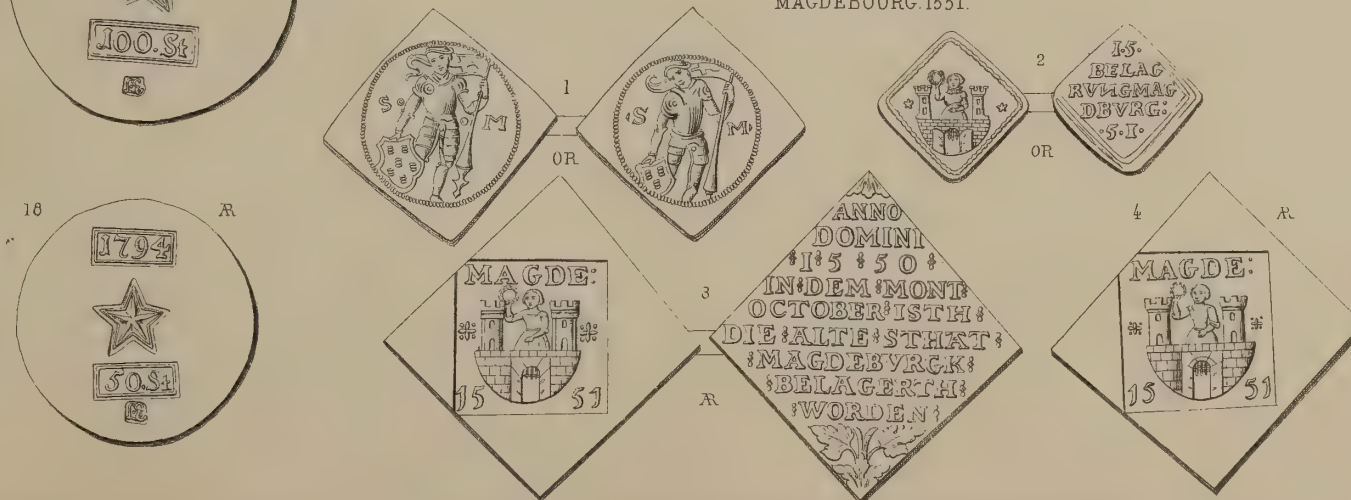 MAGDEBOURG. 1551.
100. St
18
AR
1794
50. St
1
OR
S
M
S
M
2
OR
1·5·
BELAG
RVNGMAG
DBVRG:
·5·1·
3
AR
MAGDE:
15 51
ANNO
DOMINI
1 5 50
IN DEM MONT
OCTOBER ISTH
DIE ALTE STHAT
MAGDEBVRGK
BELAGERTH
WORDEN
4
AR
MAGDE:
15 51